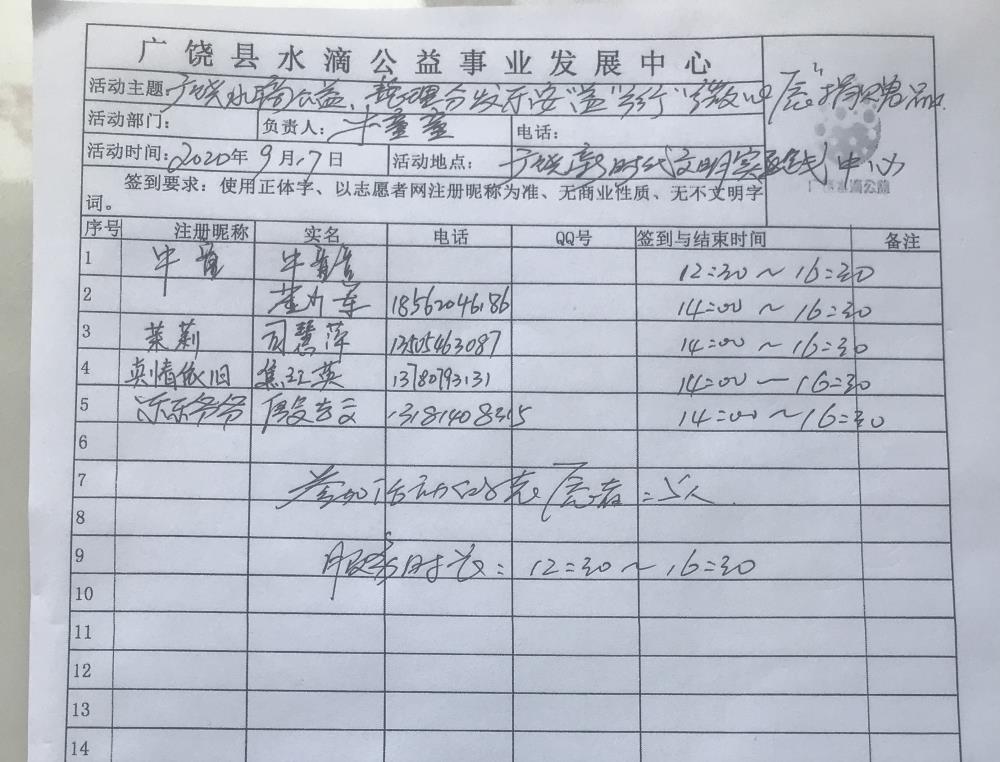 广饶县水滴公益事业发展中心
活动主题: 广饶水滴公益、整理分发乐安"益"行"微心愿"捐赠品
活动部门: 负责人: 牛童童 电话:
活动时间: 2020年9月17日 活动地点: 广饶新时代文明实践中心
广饶水滴公益
签到要求：使用正体字、以志愿者网注册昵称为准、无商业性质、无不文明字
词。
序号 注册昵称 实名 电话 QQ号 签到与结束时间 备注
1 牛童 牛童童 12:30~16:30
2 18562046186 14:00~16:30
3 茉莉 司慧萍 13505463087 14:00~16:30
4 真情依旧 焦红英 13780793131 14:00—16:30
5 乐乐爷爷 13181408345 14:00~16:30
6
7 参加活动的志愿者:5人.
8
9 服务时长: 12:30~16:30
10
11
12
13
14